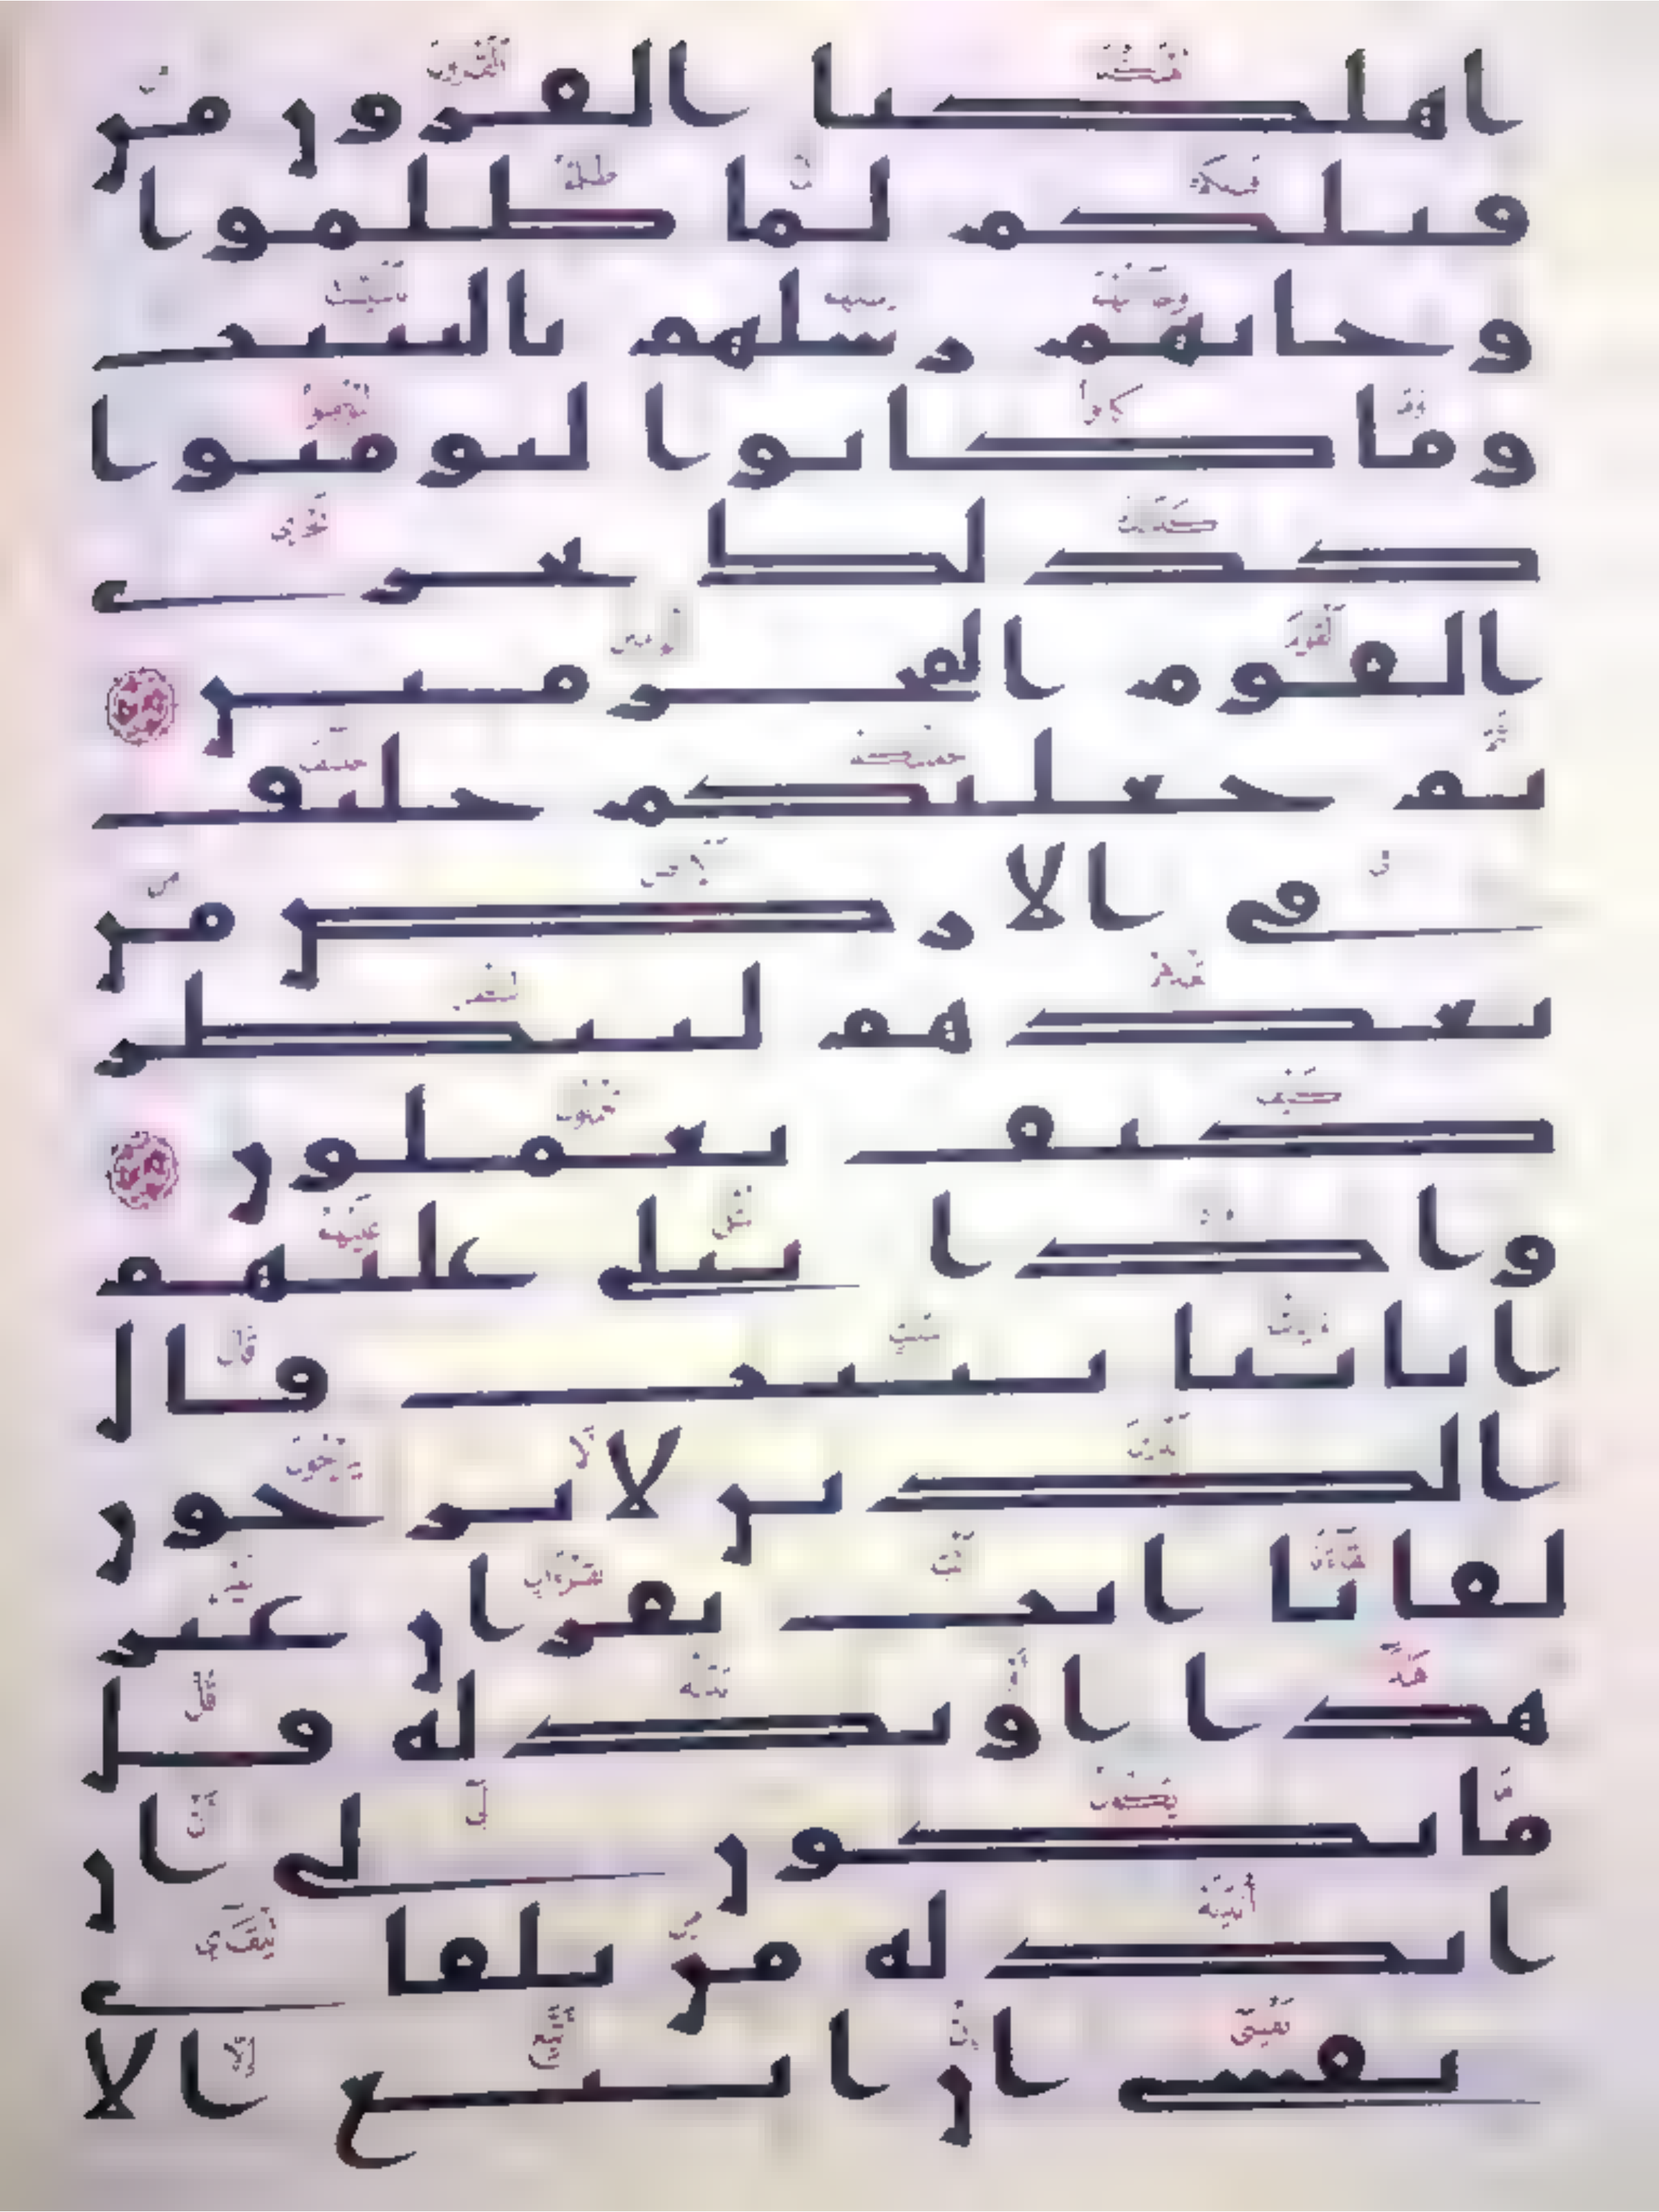 اهلكنا القرون من
قبلكم لما ظلموا
وجاتهم رسلهم بالبينت
وما كانوا ليومنوا
كذلك نجزي
القوم المجرمين
ثم جعلنكم خليف
في الارض من
بعدهم لننظر
كيف تعملون
واذا تتلى عليهم
اياتنا بينت قال
الذين لا يرجون
لقانا ايت بقران غير
هذا او بدله قل
ما يكون لي ان
ابدله من تلقاي
نفسي ان اتبع الا